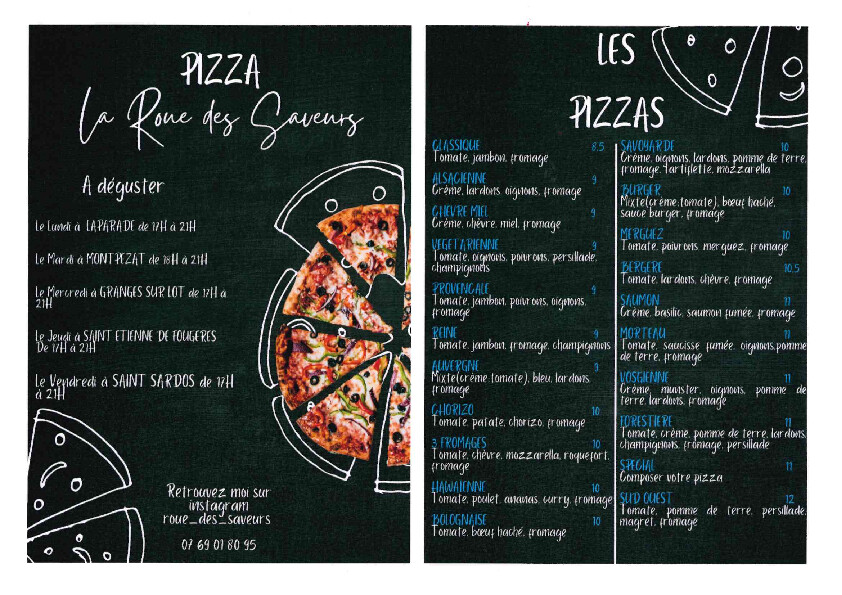 PIZZA
La Roue des Saveurs
A déguster
Le Lundi à LAPARADE de 17H à 21H
Le Mardi à MONTPEZAT de 18H à 21H
Le Mercredi à GRANGES SUR LOT de 17H à
21H
Le Jeudi à SAINT ETIENNE DE FOUGERES
De 17H à 21H
Le Vendredi à SAINT SARDOS de 17H
à 21H
Retrouvez moi sur
instagram
roue_des_saveurs
07 69 01 80 95
LES
PIZZAS
CLASSIQUE 8.5
Tomate, jambon, fromage
ALSACIENNE 9
Crème, lardons, oignons, fromage
CHEVRE MIEL 9
Crème, chèvre, miel, fromage
VEGETARIENNE 9
Tomate, oignons, poivrons, persillade,
champignons
PROVENCALE 9
Tomate, jambon, poivrons, oignons,
fromage
REINE 9
Tomate, jambon, fromage, champignons
AUVERGNE 9
Mixte(crème tomate), bleu, lardons,
fromage
CHORIZO 10
Tomate, patate, chorizo, fromage
3 FROMAGES 10
Tomate, chèvre, mozzarella, roquefort,
fromage
HAWAIENNE 10
Tomate, poulet, ananas, curry, fromage
BOLOGNAISE 10
Tomate, bœuf haché, fromage
SAVOYARDE 10
Crème, oignons, lardons, pomme de terre,
fromage, tartiflette, mozzarella
BURGER 10
Mixte(crème,tomate), bœuf haché,
sauce burger, fromage
MERGUEZ 10
Tomate, poivrons, merguez, fromage
BERGERE 10.5
Tomate, lardons, chèvre, fromage
SAUMON 11
Crème, basilic, saumon fumée, fromage
MORTEAU 11
Tomate, saucisse fumée, oignons,pomme
de terre, fromage
VOSGIENNE 11
Crème, munster, oignons, pomme de
terre, lardons, fromage
FORESTIERE 11
Tomate, crème, pomme de terre, lardons,
champignons, fromage, persillade
SPECIAL 11
Composer votre pizza
SUD OUEST 12
Tomate, pomme de terre, persillade,
magret, fromage